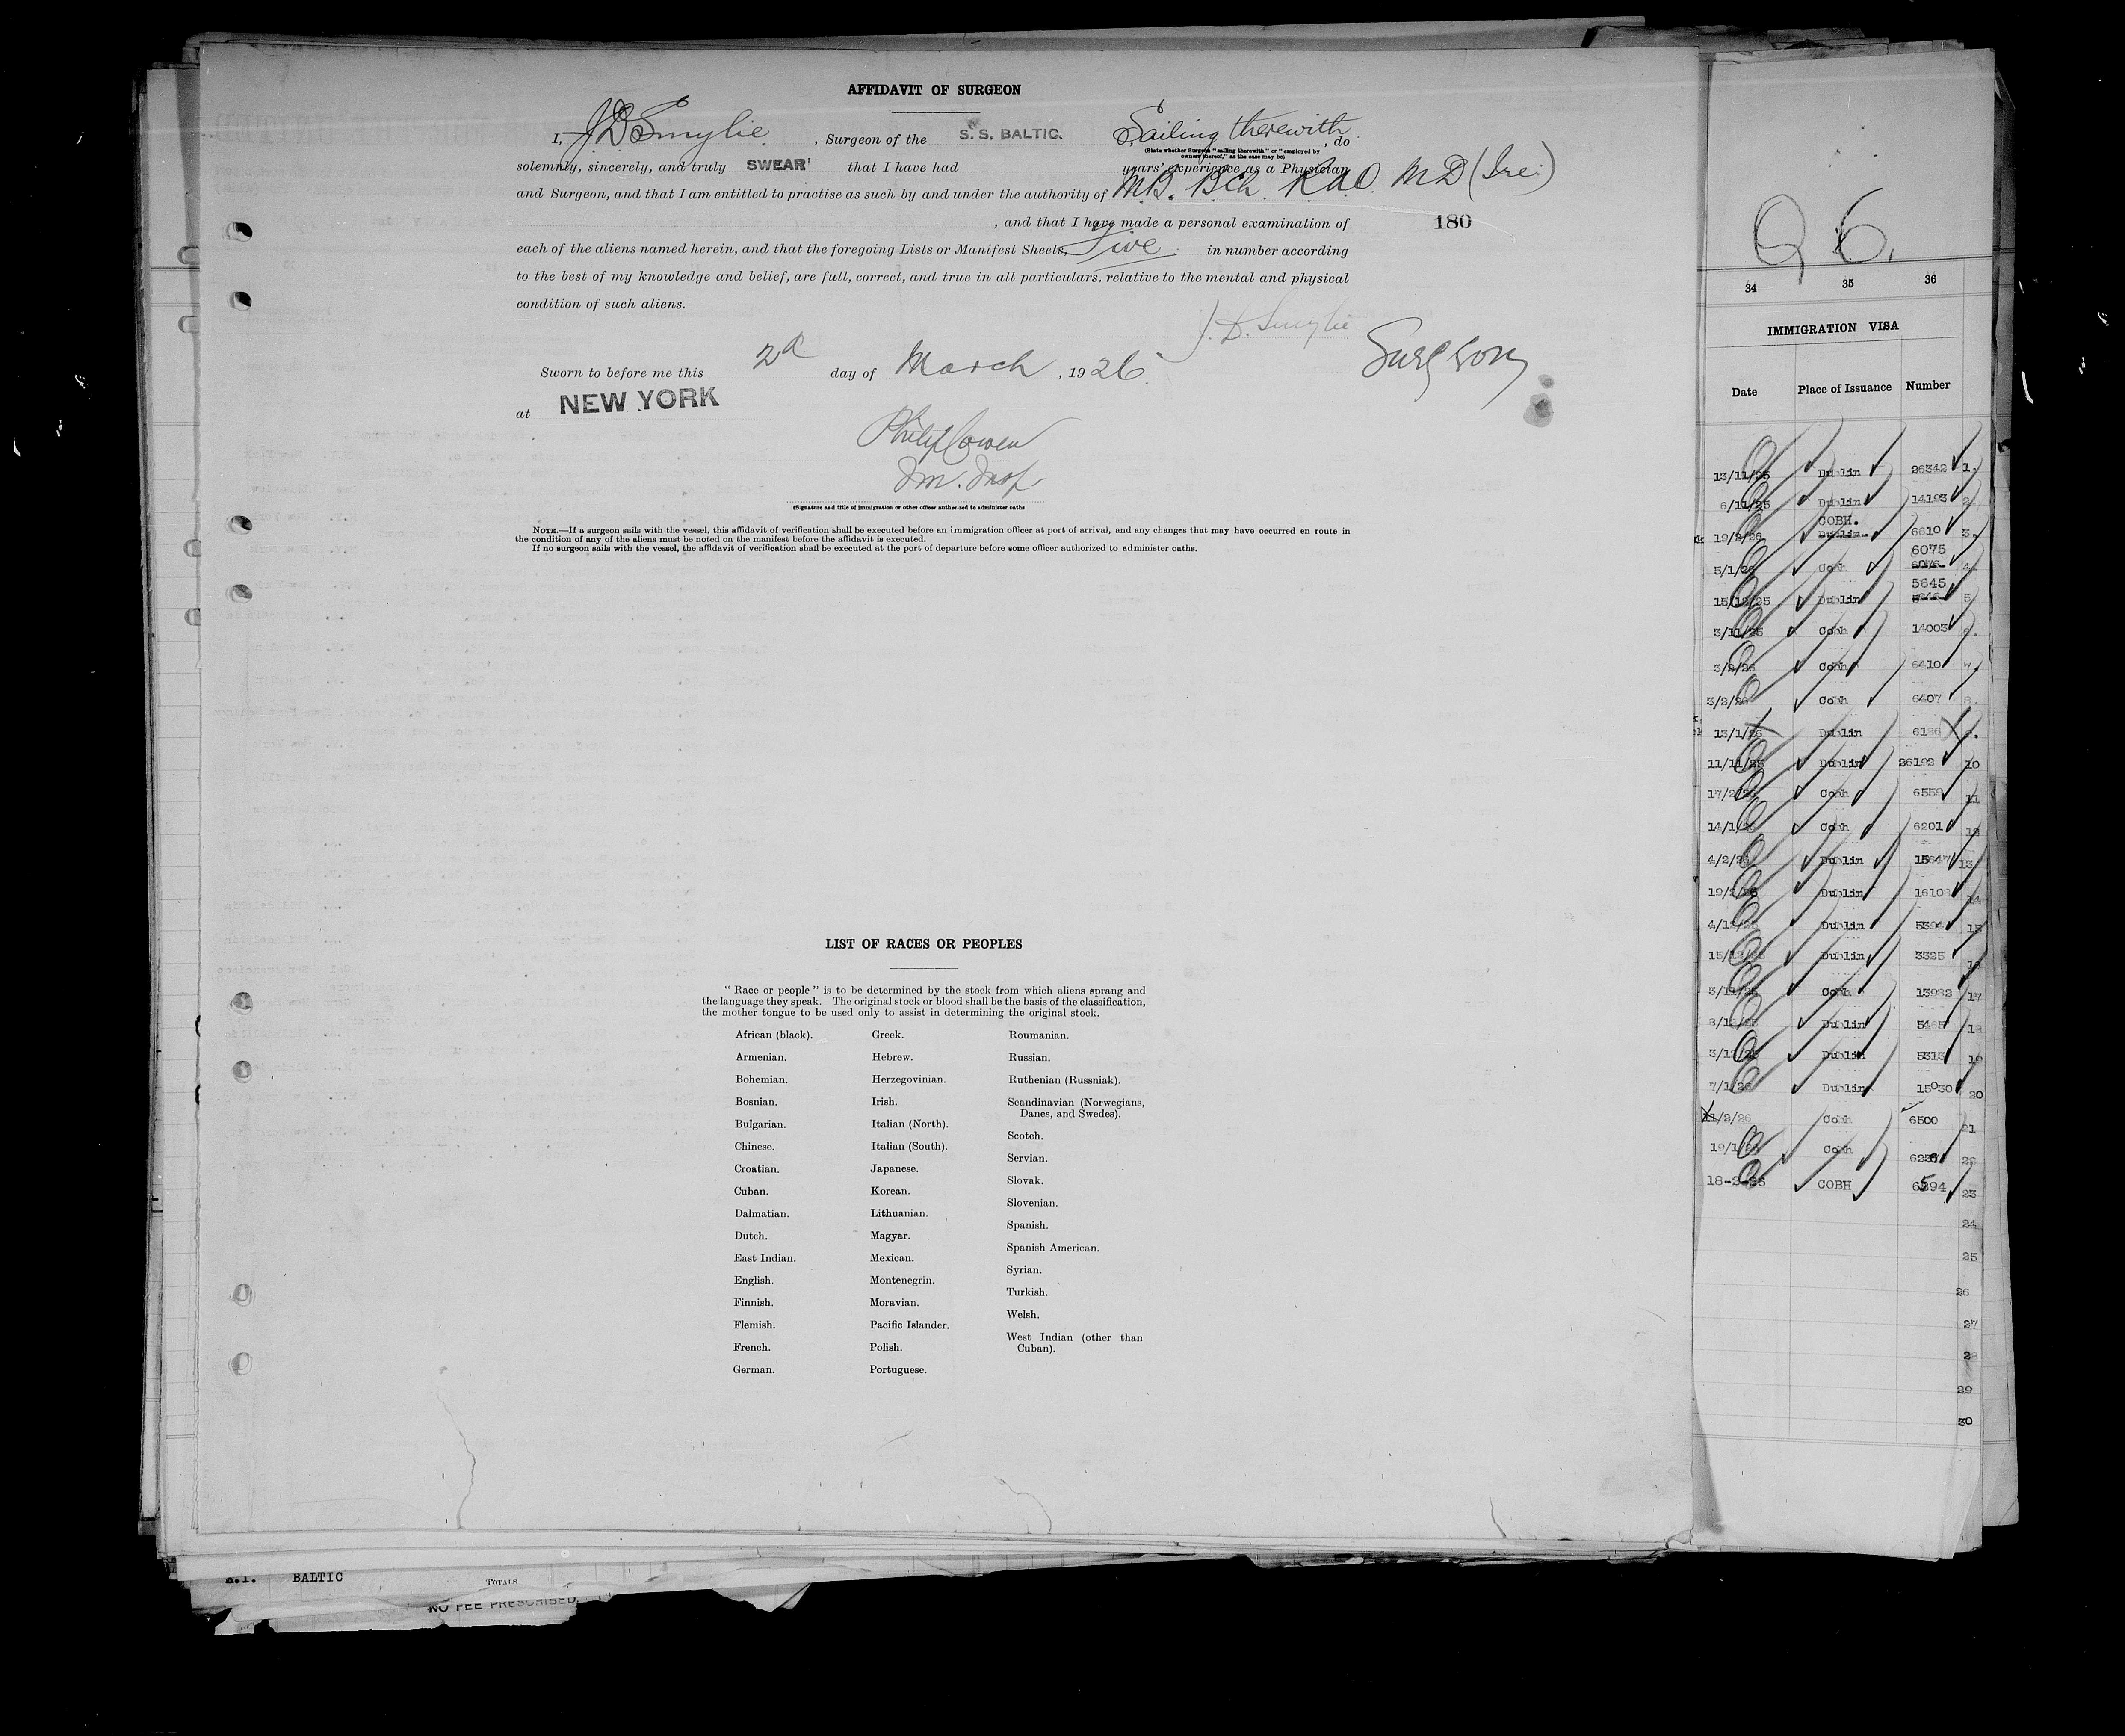 AFFIDAVIT OF SURGEON
I, J D Smylie, Surgeon of the S. S. BALTIC. Sailing therewith, do
(State whether Surgeon "sailing therewith" or "employed by
owners thereof," as the case may be)
solemnly, sincerely, and truly SWEAR that I have had years' experience as a Physician
and Surgeon, and that I am entitled to practise as such by and under the authority of M.B. BCh. R.A.O. MD (Ire:)
, and that I have made a personal examination of 180
each of the aliens named herein, and that the foregoing Lists or Manifest Sheets, Five in number according
to the best of my knowledge and belief, are full, correct, and true in all particulars. relative to the mental and physical
condition of such aliens.
J. D. Smylie Surgeon
Sworn to before me this 2d day of March, 1926
at NEW YORK
Philip Cowen
Im. Insp.
(Signature and title of immigration or other officer authorized to administer oaths
NOTE.—If a surgeon sails with the vessel, this affidavit of verification shall be executed before an immigration officer at port of arrival, and any changes that may have occurred en route in
the condition of any of the aliens must be noted on the manifest before the affidavit is executed.
If no surgeon sails with the vessel, the affidavit of verification shall be executed at the port of departure before some officer authorized to administer oaths.
LIST OF RACES OR PEOPLES
" Race or people " is to be determined by the stock from which aliens sprang and
the language they speak. The original stock or blood shall be the basis of the classification,
the mother tongue to be used only to assist in determining the original stock.
African (black).
Armenian.
Bohemian.
Bosnian.
Bulgarian.
Chinese.
Croatian.
Cuban.
Dalmatian.
Dutch.
East Indian.
English.
Finnish.
Flemish.
French.
German.
Greek.
Hebrew.
Herzegovinian.
Irish.
Italian (North).
Italian (South).
Japanese.
Korean.
Lithuanian.
Magyar.
Mexican.
Montenegrin.
Moravian.
Pacific Islander.
Polish.
Portuguese.
Roumanian.
Russian.
Ruthenian (Russniak).
Scandinavian (Norwegians,
Danes, and Swedes).
Scotch.
Servian.
Slovak.
Slovenian.
Spanish.
Spanish American.
Syrian.
Turkish.
Welsh.
West Indian (other than
Cuban).
34 35 36
IMMIGRATION VISA
Date Place of Issuance Number
13/11/25 Dublin 26342 1.
6/11/25 Dublin 14193 2.
COBH.
19/2/26 Dublin 6610 3.
6075
5/1/26 Cobh 6076 4.
5645
15/12/25 Dublin 5.
3/11/25 Cobh 14003 6.
3/2/26 Cobh 6410 7.
3/2/26 Cobh 6407 8.
13/1/26 Dublin 6186 9.
11/11/25 Dublin 26192 10
17/2/26 Cobh 6559 11
14/1/26 Cobh 6201 12
4/2/26 Dublin 15647 13
Dublin 14
Dublin 15
Dublin 3325 16
3/11/25 Cobh 13982 17
Dublin 18
Dublin 5313 19
7/1/26 Dublin 15030 20
11/2/26 Cobh 6500 21
19/1/26 Cobh 22
18-2-26 COBH 23
24
25
26
27
28
29
30
BALTIC TOTALS
NO FEE PRESCRIBED.